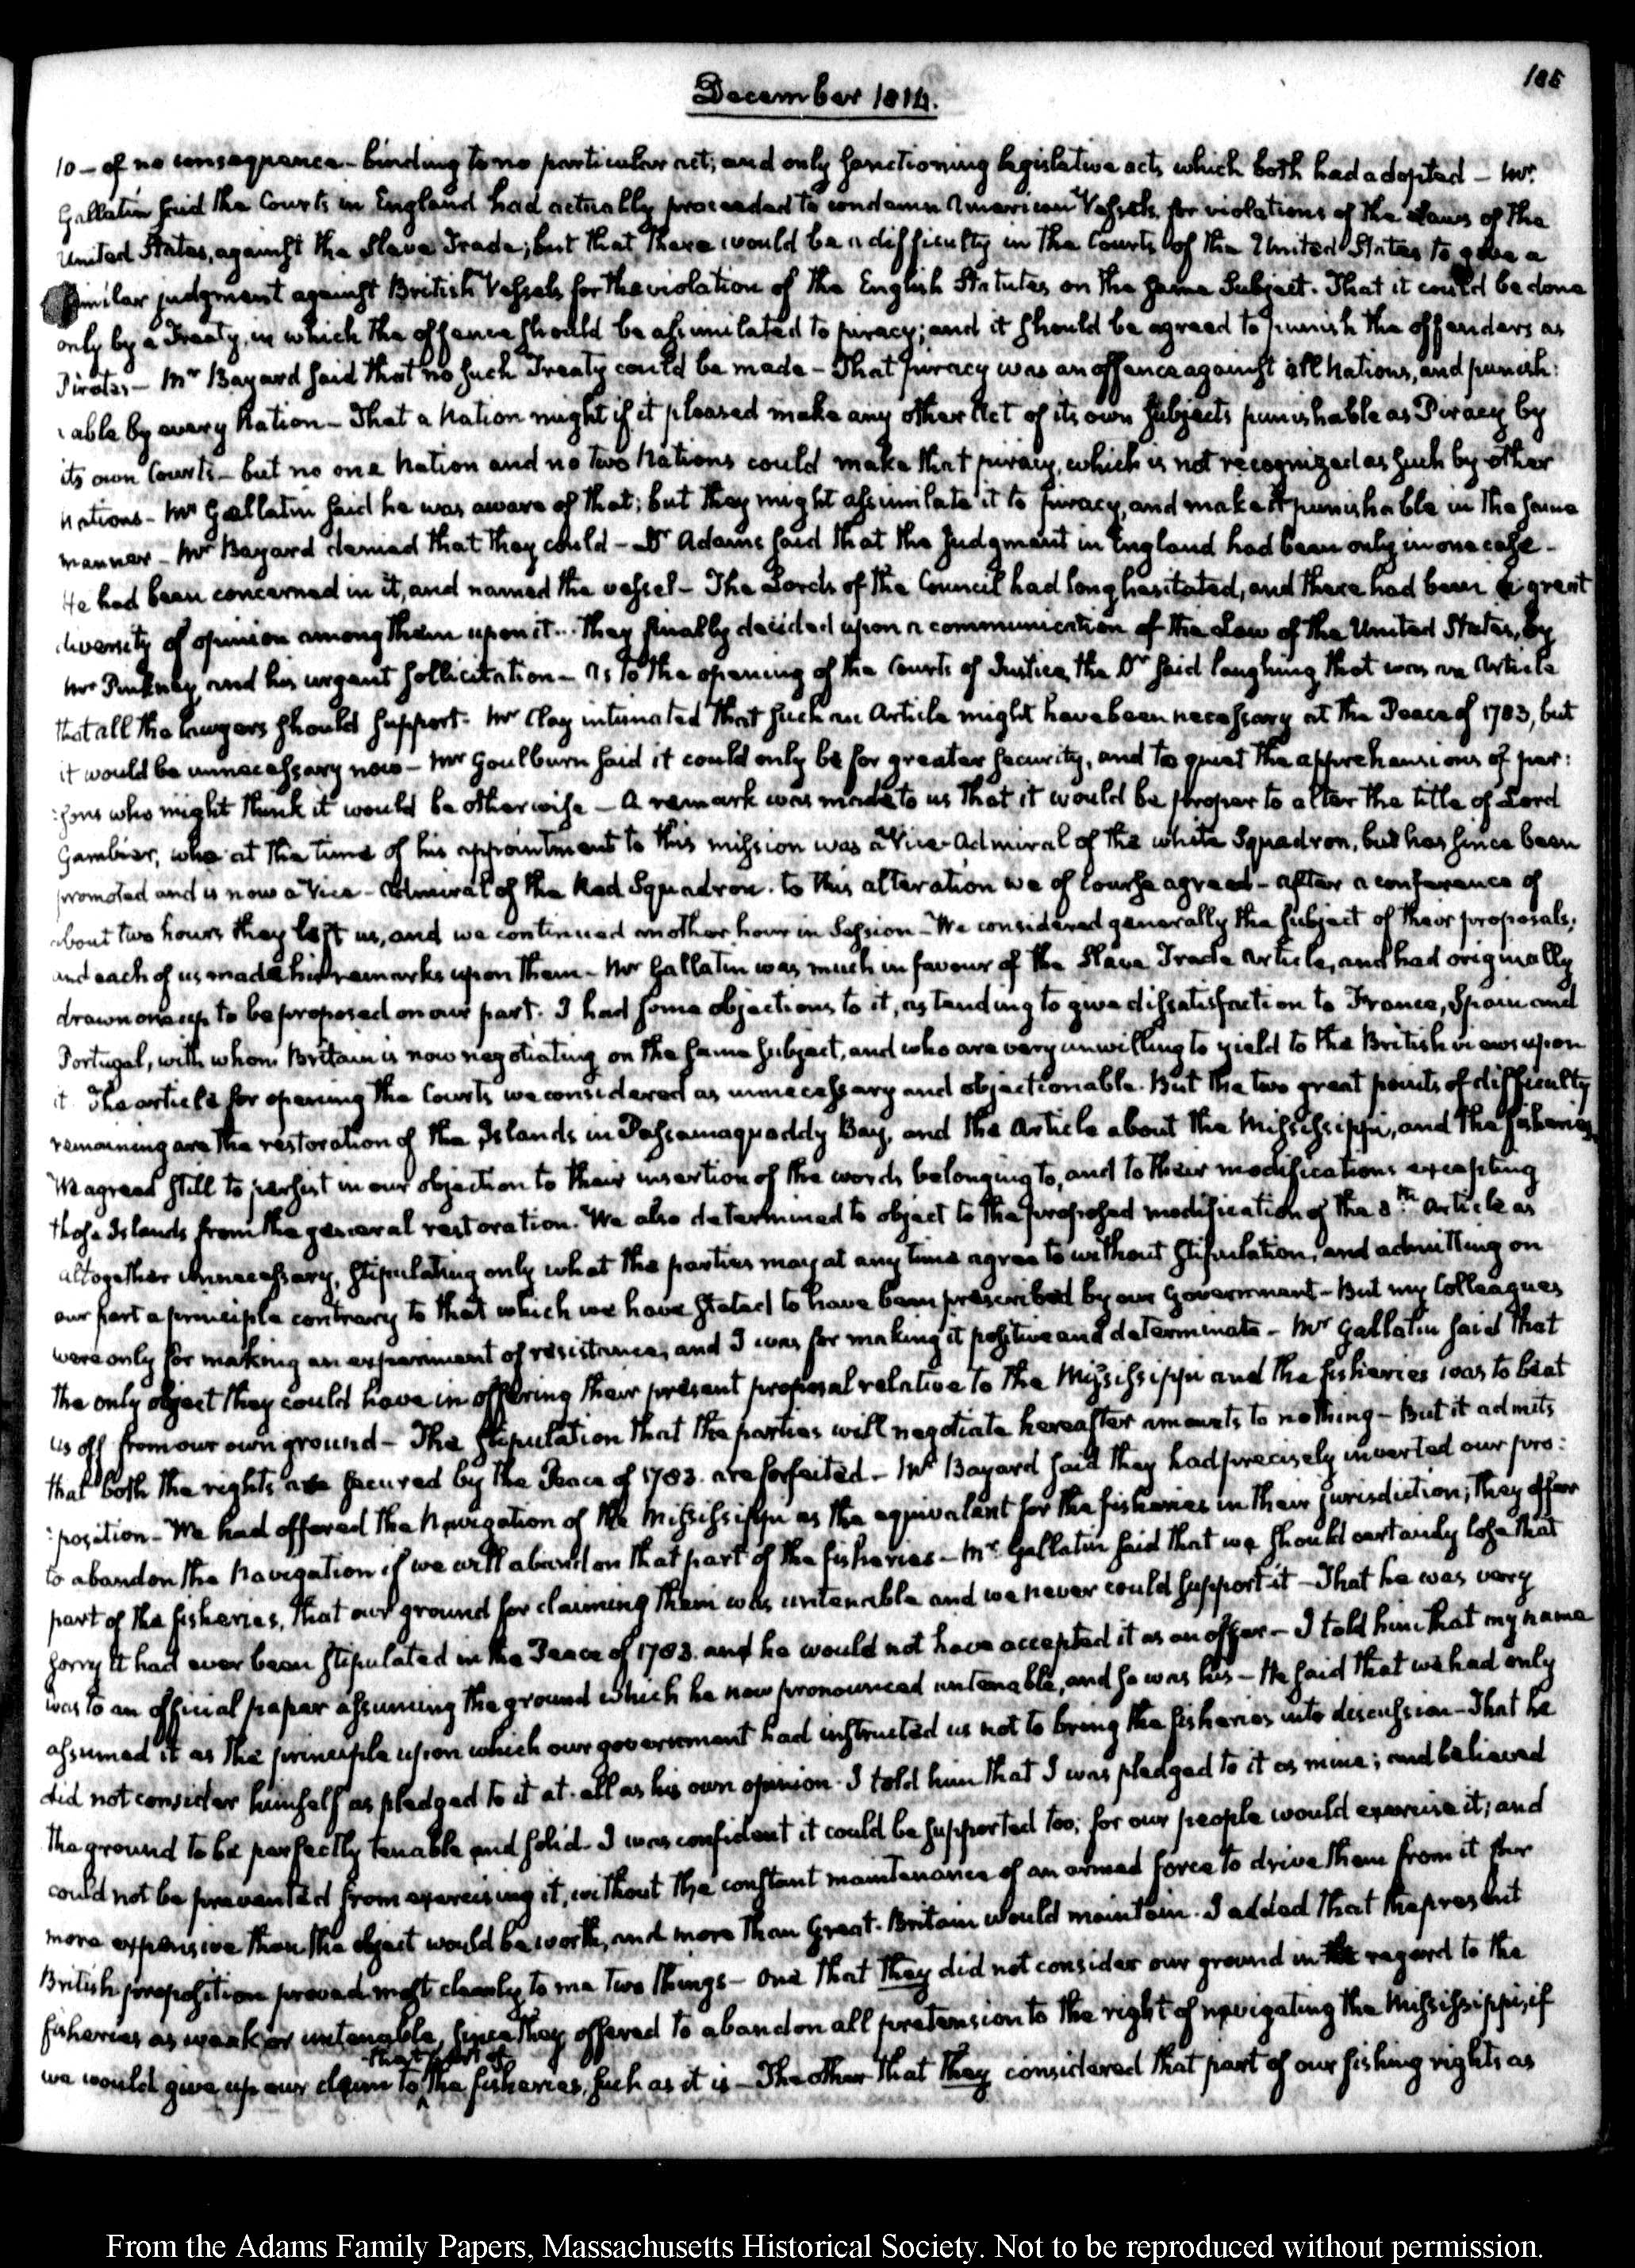 December 1814.
185
10 — of no consequence — binding to no particular act; and only sanctioning legislative acts which both had adopted — Mr.
Gallatin said the Courts in England had actually proceeded to condemn American Vessels, for violations of the Laws of the
United States, against the Slave Trade; but that there would be a difficulty in the Courts of the United States to give a
similar judgment against British Vessels for the violation of the English Statutes on the same Subject. That it could be done
only by a Treaty, in which the offence should be assimilated to piracy; and it should be agreed to punish the offenders as
Pirates — Mr Bayard said that no such Treaty could be made — That piracy was an offence against all Nations, and punish:
:able by every Nation — That a Nation might if it pleased make any other Act of its own subjects punishable as Piracy by
its own Courts — but no one Nation and no two Nations could make that piracy, which is not recognized as such by other
Nations — Mr Gallatin said he was aware of that; but they might assimilate it to piracy, and make it punishable in the same
manner — Mr Bayard denied that they could — Dr Adams said that the Judgment in England had been only in one case —
He had been concerned in it, and named the vessel — The Lords of the Council had long hesitated, and there had been a great
diversity of opinion among them upon it... They finally decided upon a communication of the Law of the United States, by
Mr Pinkney, and his urgent sollicitation — As to the opening of the Courts of Justice, the Dr said laughing that was an Article
that all the lawyers should support. Mr Clay intimated that such an Article might have been necessary at the Peace of 1783, but
it would be unnecessary now — Mr Goulburn said it could only be for greater security, and to quiet the apprehensions of per:
:sons who might think it would be otherwise — A remark was made to us that it would be proper to alter the title of Lord
Gambier, who at the time of his appointment to this mission was a Vice-Admiral of the white Squadron, but has since been
promoted and is now a Vice-Admiral of the Red Squadron. to this alteration we of course agreed — after a conference of
about two hours they left us, and we continued another hour in Session — We considered generally the subject of their proposals;
and each of us made his remarks upon them — Mr Gallatin was much in favour of the Slave Trade Article, and had originally
drawn one up to be proposed on our part. I had some objections to it, as tending to give dissatisfaction to France, Spain and
Portugal, with whom Britain is now negotiating on the same subject, and who are very unwilling to yield to the British views upon
it. The article for opening the Courts we considered as unnecessary and objectionable. But the two great points of difficulty
remaining are the restoration of the Islands in Passamaquoddy Bay, and the Article about the Mississippi, and the fisheries.
We agreed still to persist in our objection to their insertion of the words belonging to, and to their modifications excepting
those Islands from the general restoration. We also determined to object to the proposed modification of the 8th. Article as
altogether unnecessary, stipulating only what the parties may at any time agree to without stipulation, and admitting on
our part a principle contrary to that which we have stated to have been prescribed by our Government — But my Colleagues
were only for making an experiment of resistance, and I was for making it positive and determinate — Mr Gallatin said that
the only object they could have in offering their present proposal relative to the Mississippi and the fisheries was to beat
us off from our own ground — The stipulation that the parties will negotiate hereafter amounts to nothing — But it admits
that both the rights are secured by the Peace of 1783. are forfeited — Mr Bayard said they had precisely inverted our pro:
:position — We had offered the Navigation of the Mississippi as the equivalent for the fisheries in their jurisdiction; they offer
to abandon the Navigation if we will abandon that part of the fisheries — Mr. Gallatin said that we should certainly lose that
part of the fisheries, that our ground for claiming them was untenable and we never could support it — That he was very
sorry it had ever been stipulated in the Peace of 1783. and he would not have accepted it as an offer — I told him that my name
was to an official paper assuming the ground which he now pronounced untenable, and so was his — He said that we had only
assumed it as the principle upon which our government had instructed us not to bring the fisheries into discussion — That he
did not consider himself as pledged to it at all as his own opinion. I told him that I was pledged to it as mine; and believed
the ground to be perfectly tenable and solid. I was confident it could be supported too; for our people would exercise it; and
could not be prevented from exercising it, without the constant maintenance of an armed force to drive them from it far
more expensive than the object would be worth, and more than Great-Britain would maintain. I added that the present
British proposition proved most clearly to me two things — One that they did not consider our ground in regard to the
fisheries as weak or untenable, since they offered to abandon all pretension to the right of navigating the Mississippi, if
that part of
we would give up our claim to the fisheries, such as it is — The other that they considered that part of our fishing rights as
From the Adams Family Papers, Massachusetts Historical Society. Not to be reproduced without permission.